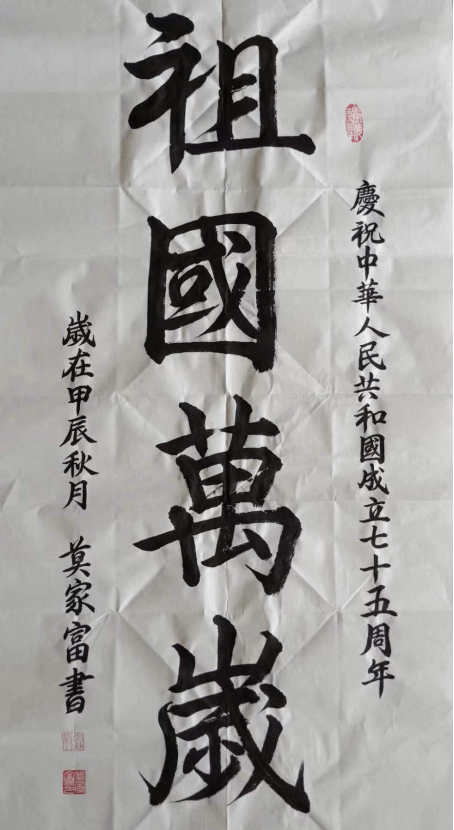 慶祝中華人民共和國成立七十五周年
祖國萬歲
歲在甲辰秋月 莫家富書